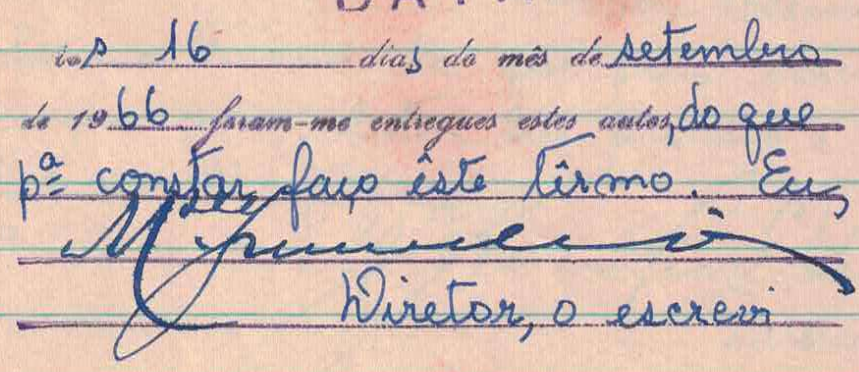 DATA
Aos 16 dias do mês de setembro
de 1966 foram-me entregues estes autos, do que
pª constar, faço êste têrmo. Eu,
Diretor, o escrevi